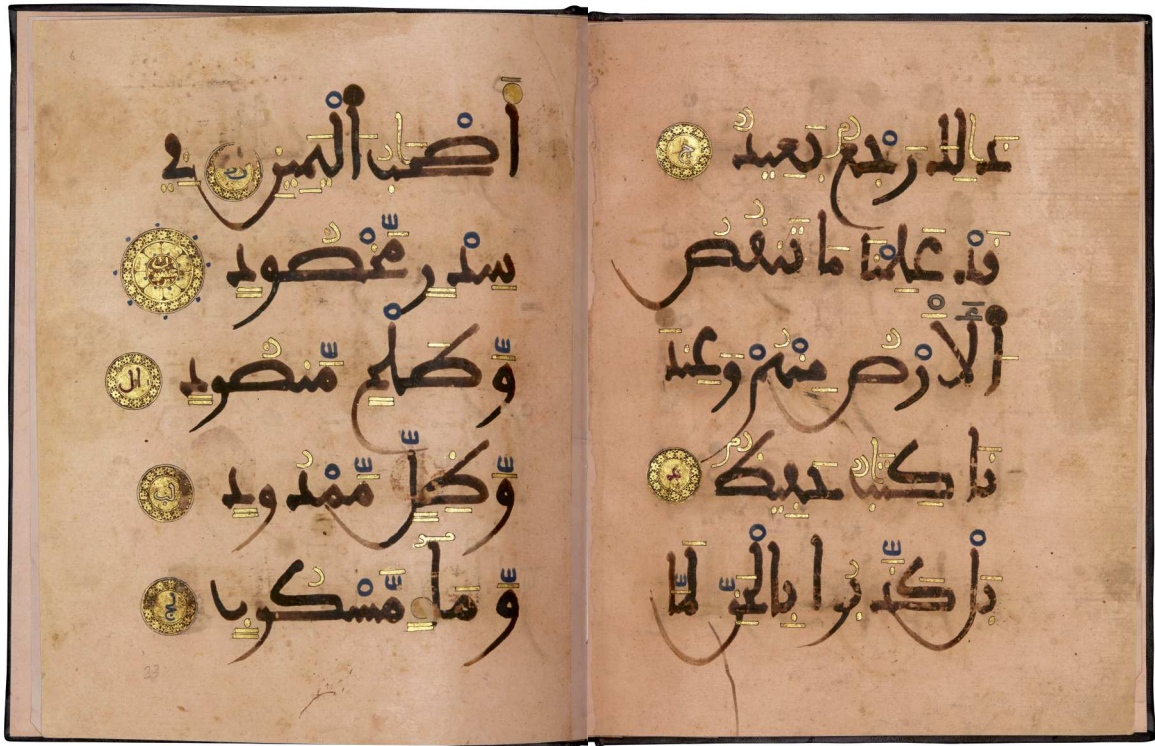 ذَٰلِكَ رَجْعٌ بَعِيدٌ
قَدْ عَلِمْنَا مَا تَنقُصُ
ٱلْأَرْضُ مِنْهُمْ وَعِندَ
نَا كِتَٰبٌ حَفِيظٌ
بَلْ كَذَّبُوا بِٱلْحَقِّ لَمَّا
أَصْحَٰبُ ٱلْيَمِينِ فِي
سِدْرٍ مَّخْضُودٍ
وَّطَلْحٍ مَّنضُودٍ
وَّظِلٍّ مَّمْدُودٍ
وَّمَاءٍ مَّسْكُوبٍ
33